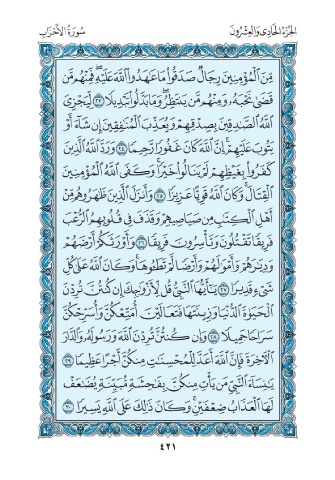 الجزء الحادي والعشرون
سورة الأحزاب
مِّنَ ٱلْمُؤْمِنِينَ رِجَالٌ صَدَقُوا۟ مَا عَٰهَدُوا۟ ٱللَّهَ عَلَيْهِ فَمِنْهُم مَّن
قَضَىٰ نَحْبَهُۥ وَمِنْهُم مَّن يَنتَظِرُ وَمَا بَدَّلُوا۟ تَبْدِيلًا ٢٣ لِّيَجْزِىَ
ٱللَّهُ ٱلصَّٰدِقِينَ بِصِدْقِهِمْ وَيُعَذِّبَ ٱلْمُنَٰفِقِينَ إِن شَآءَ أَوْ
يَتُوبَ عَلَيْهِمْ إِنَّ ٱللَّهَ كَانَ غَفُورًا رَّحِيمًا ٢٤ وَرَدَّ ٱللَّهُ ٱلَّذِينَ
كَفَرُوا۟ بِغَيْظِهِمْ لَمْ يَنَالُوا۟ خَيْرًا وَكَفَى ٱللَّهُ ٱلْمُؤْمِنِينَ
ٱلْقِتَالَ وَكَانَ ٱللَّهُ قَوِيًّا عَزِيزًا ٢٥ وَأَنزَلَ ٱلَّذِينَ ظَٰهَرُوهُم مِّنْ
أَهْلِ ٱلْكِتَٰبِ مِن صَيَاصِيهِمْ وَقَذَفَ فِى قُلُوبِهِمُ ٱلرُّعْبَ
فَرِيقًا تَقْتُلُونَ وَتَأْسِرُونَ فَرِيقًا ٢٦ وَأَوْرَثَكُمْ أَرْضَهُمْ
وَدِيَٰرَهُمْ وَأَمْوَٰلَهُمْ وَأَرْضًا لَّمْ تَطَـُٔوهَا وَكَانَ ٱللَّهُ عَلَىٰ كُلِّ
شَىْءٍ قَدِيرًا ٢٧ يَٰٓأَيُّهَا ٱلنَّبِىُّ قُل لِّأَزْوَٰجِكَ إِن كُنتُنَّ تُرِدْنَ
ٱلْحَيَوٰةَ ٱلدُّنْيَا وَزِينَتَهَا فَتَعَالَيْنَ أُمَتِّعْكُنَّ وَأُسَرِّحْكُنَّ
سَرَاحًا جَمِيلًا ٢٨ وَإِن كُنتُنَّ تُرِدْنَ ٱللَّهَ وَرَسُولَهُۥ وَٱلدَّارَ
ٱلْءَاخِرَةَ فَإِنَّ ٱللَّهَ أَعَدَّ لِلْمُحْسِنَٰتِ مِنكُنَّ أَجْرًا عَظِيمًا ٢٩
يَٰنِسَآءَ ٱلنَّبِىِّ مَن يَأْتِ مِنكُنَّ بِفَٰحِشَةٍ مُّبَيِّنَةٍ يُضَٰعَفْ
لَهَا ٱلْعَذَابُ ضِعْفَيْنِ وَكَانَ ذَٰلِكَ عَلَى ٱللَّهِ يَسِيرًا ٣٠
٤٢١